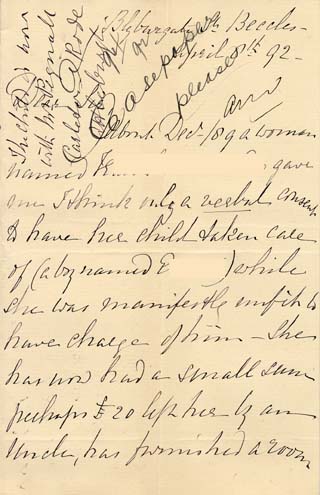 Blyburgate St Beccles
April 8th 92 -
Case paper
please
The child is now
with Mr Reynolds
Sir
About Decr 189 a woman
named E gave
me I think only a verbal consent
to have her child taken care
of (a boy named E ) while
she was manifestly unfit to
have charge of him - She
has now had a small sum
perhaps £20 left her by an
Uncle, has furnished a room